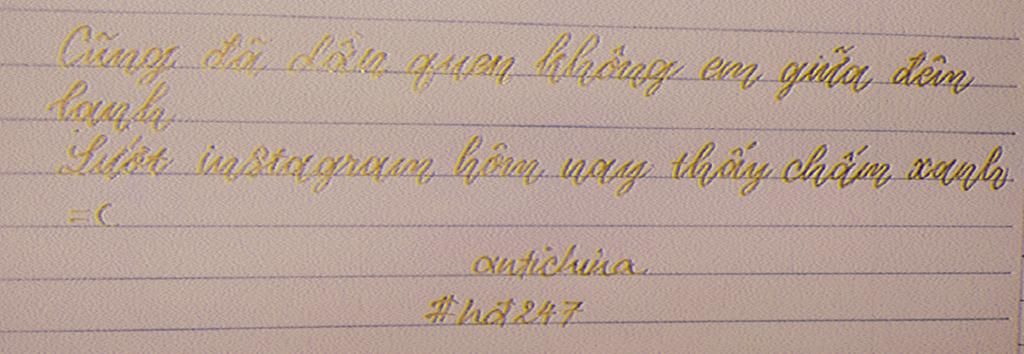 Cũng đã dần quen không em giữa đêm
lanh
Lướt instagram hôm nay thấy chấm xanh
=(
antichina
#hd247